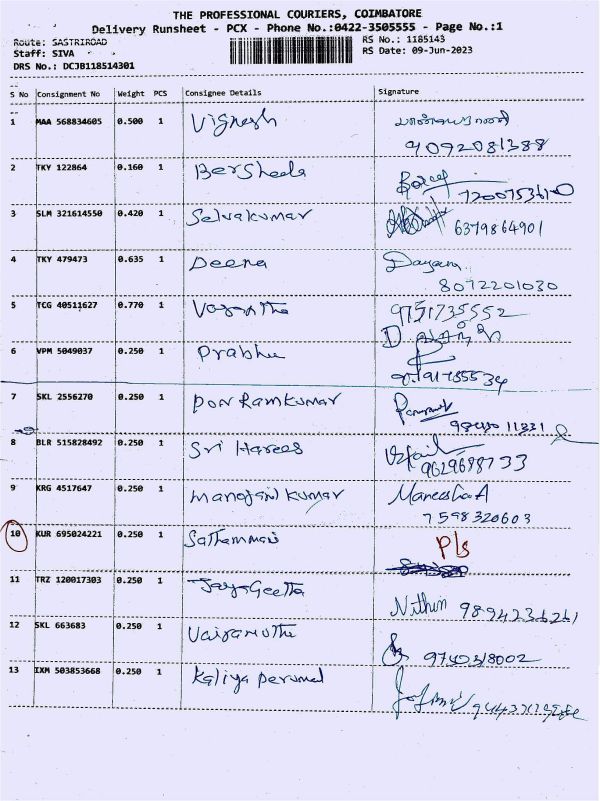 THE PROFESSIONAL COURIERS, COIMBATORE
Delivery Runsheet - PCX - Phone No.:0422-3505555 - Page No.:1
Route: SASTRIROAD RS No.: 1185143
Staff: SIVA RS Date: 09-Jun-2023
DRS No.: DCJB118514301
S No Consignment No Weight PCS Consignee Details Signature
1 MAA 568834605 0.500 1 Vignesh
9092081388
2 TKY 122864 0.160 1 BerSheela
3 SLM 321614550 0.420 1 Selvakumar 6379864901
4 TKY 479473 0.635 1 Deena Dayana
8072201030
5 TCG 40511627 0.770 1 Vasantha 9751735552
6 VPM 5049037 0.250 1 Prabhu
7 SKL 2556270 0.250 1 Pon Ramkumar
8 BLR 515828492 0.250 1 Sri Harees
9 KRG 4517647 0.250 1 Manojsu Kumar Maneesha A
7598320603
10 KUR 695024221 0.250 1 Sathammai Pls
11 TRZ 120017303 0.250 1 JayaGeetha
Nithin
12 SKL 663683 0.250 1 Vairamuthu
13 IXM 503853668 0.250 1 Kaliya perumal